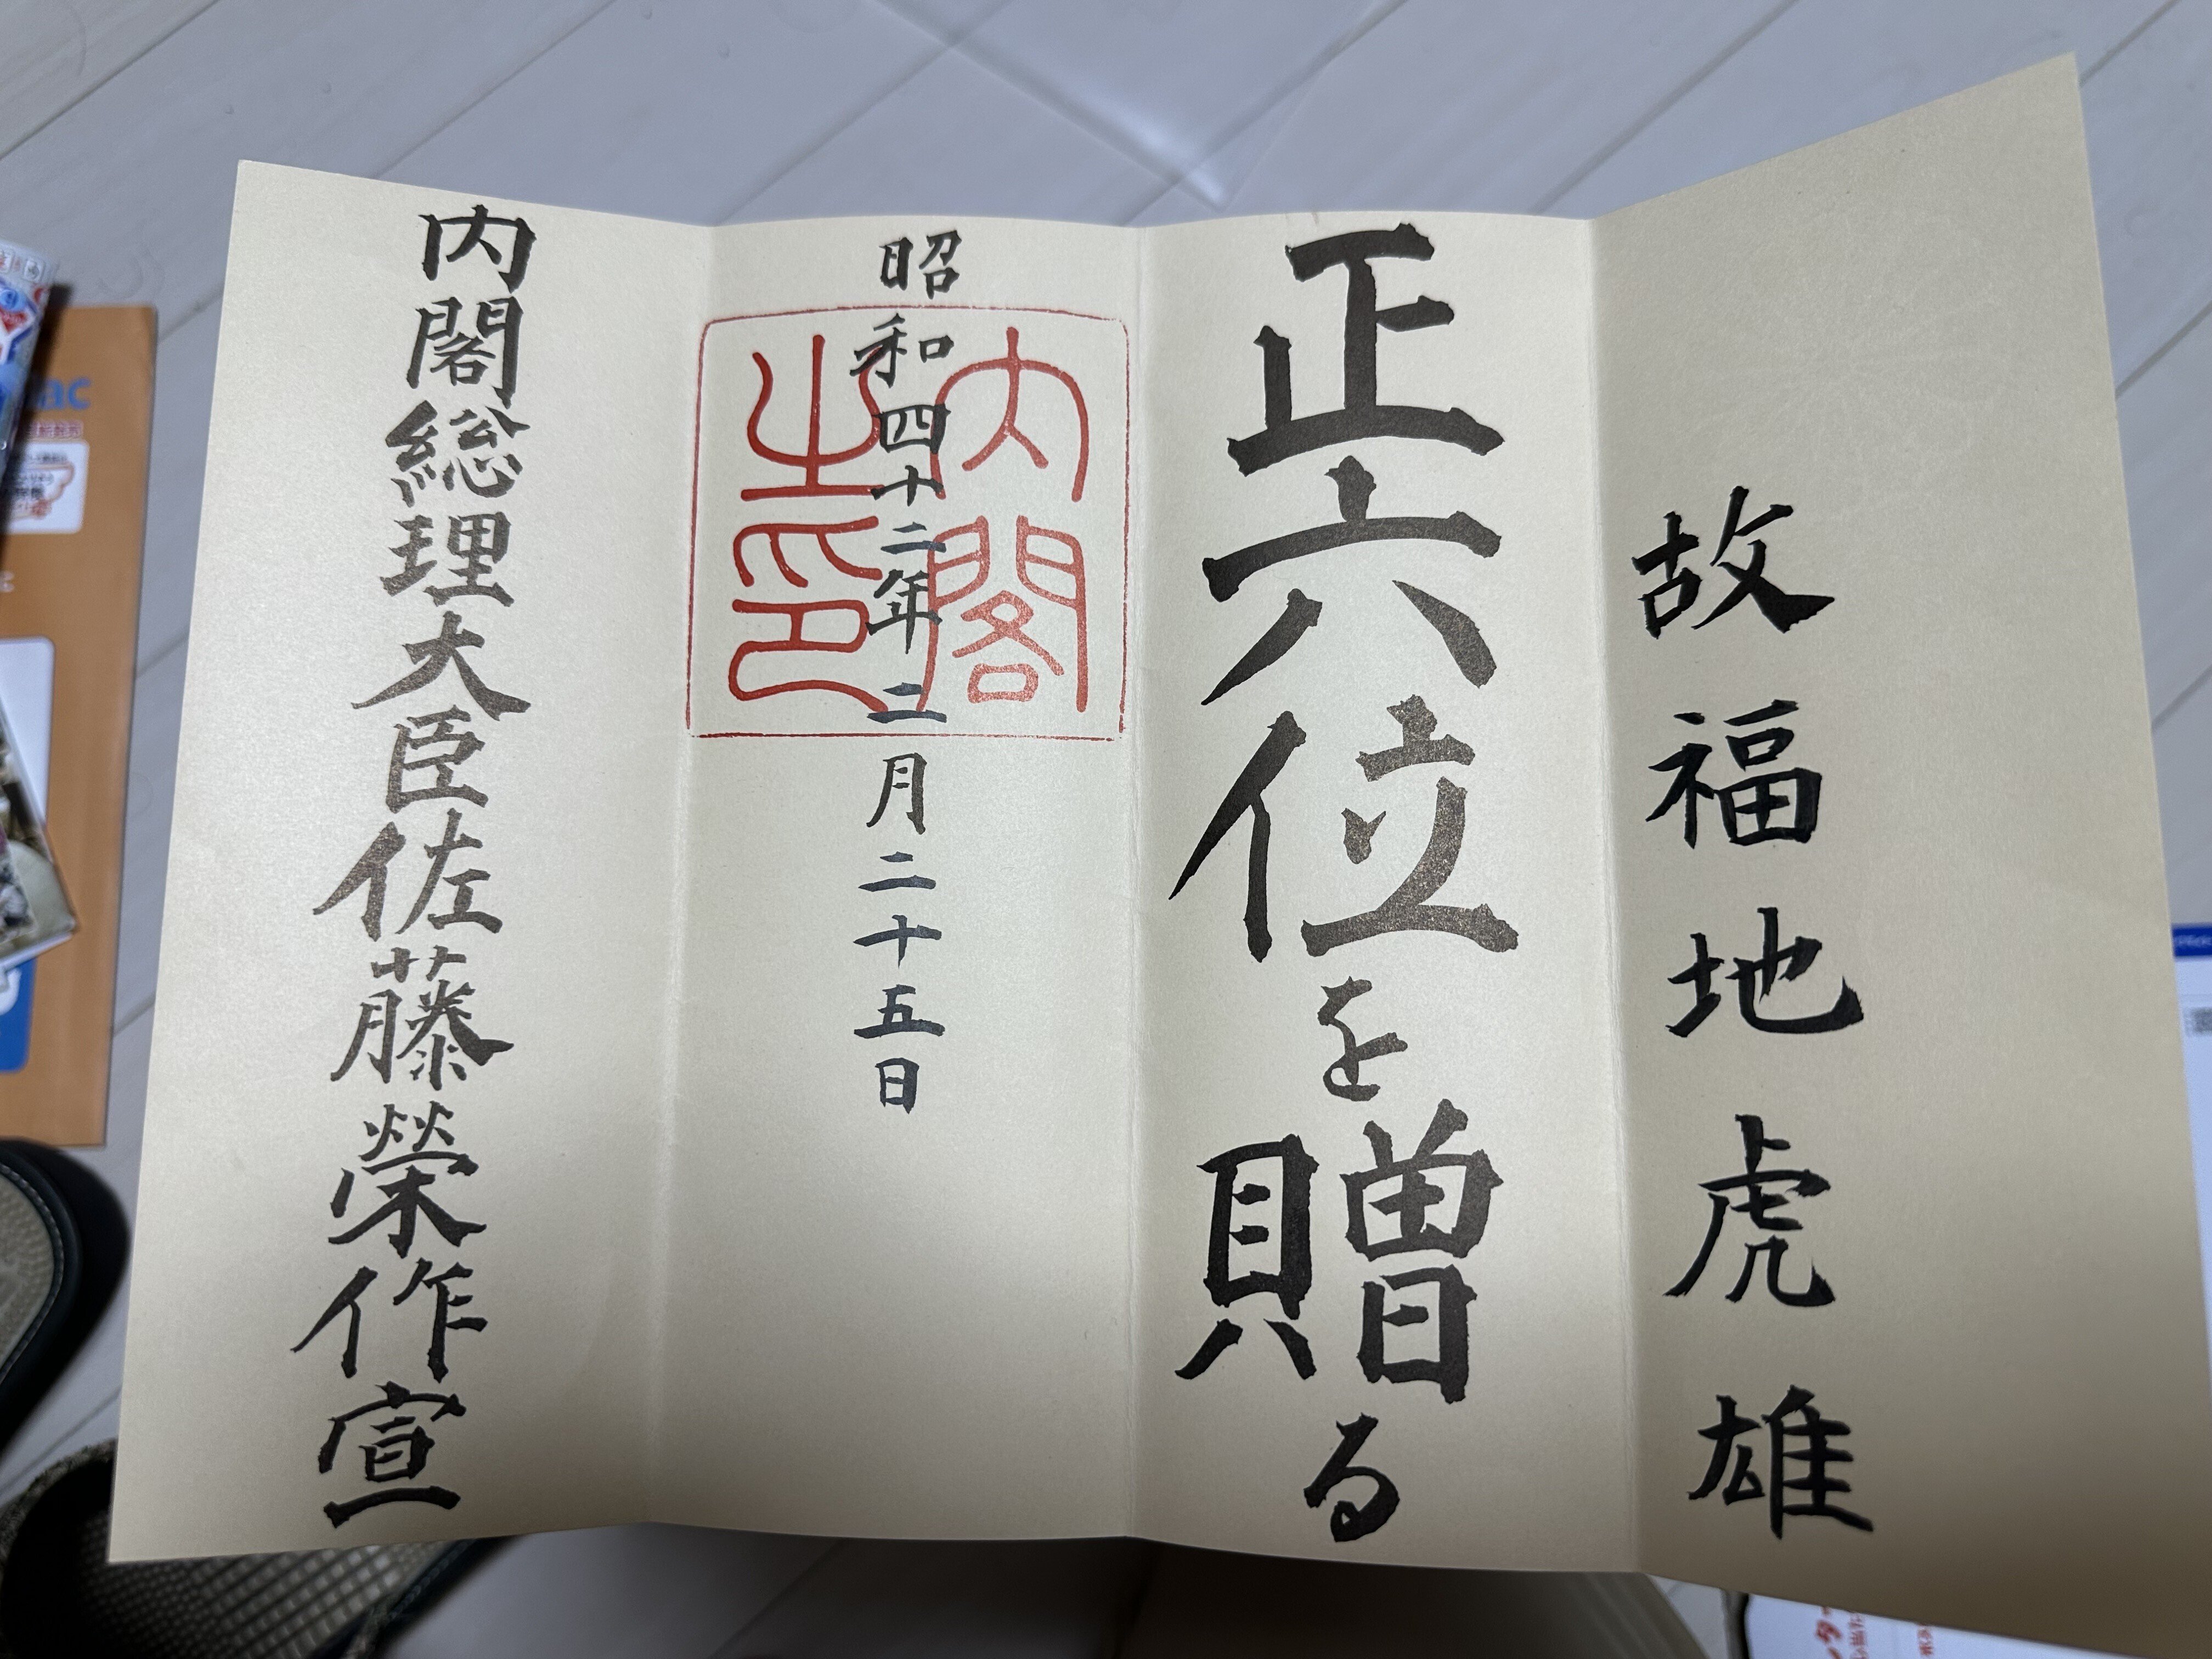 故福地虎雄
正六位を贈る
昭和四十二年二月二十五日
内閣之印
内閣総理大臣佐藤榮作宣